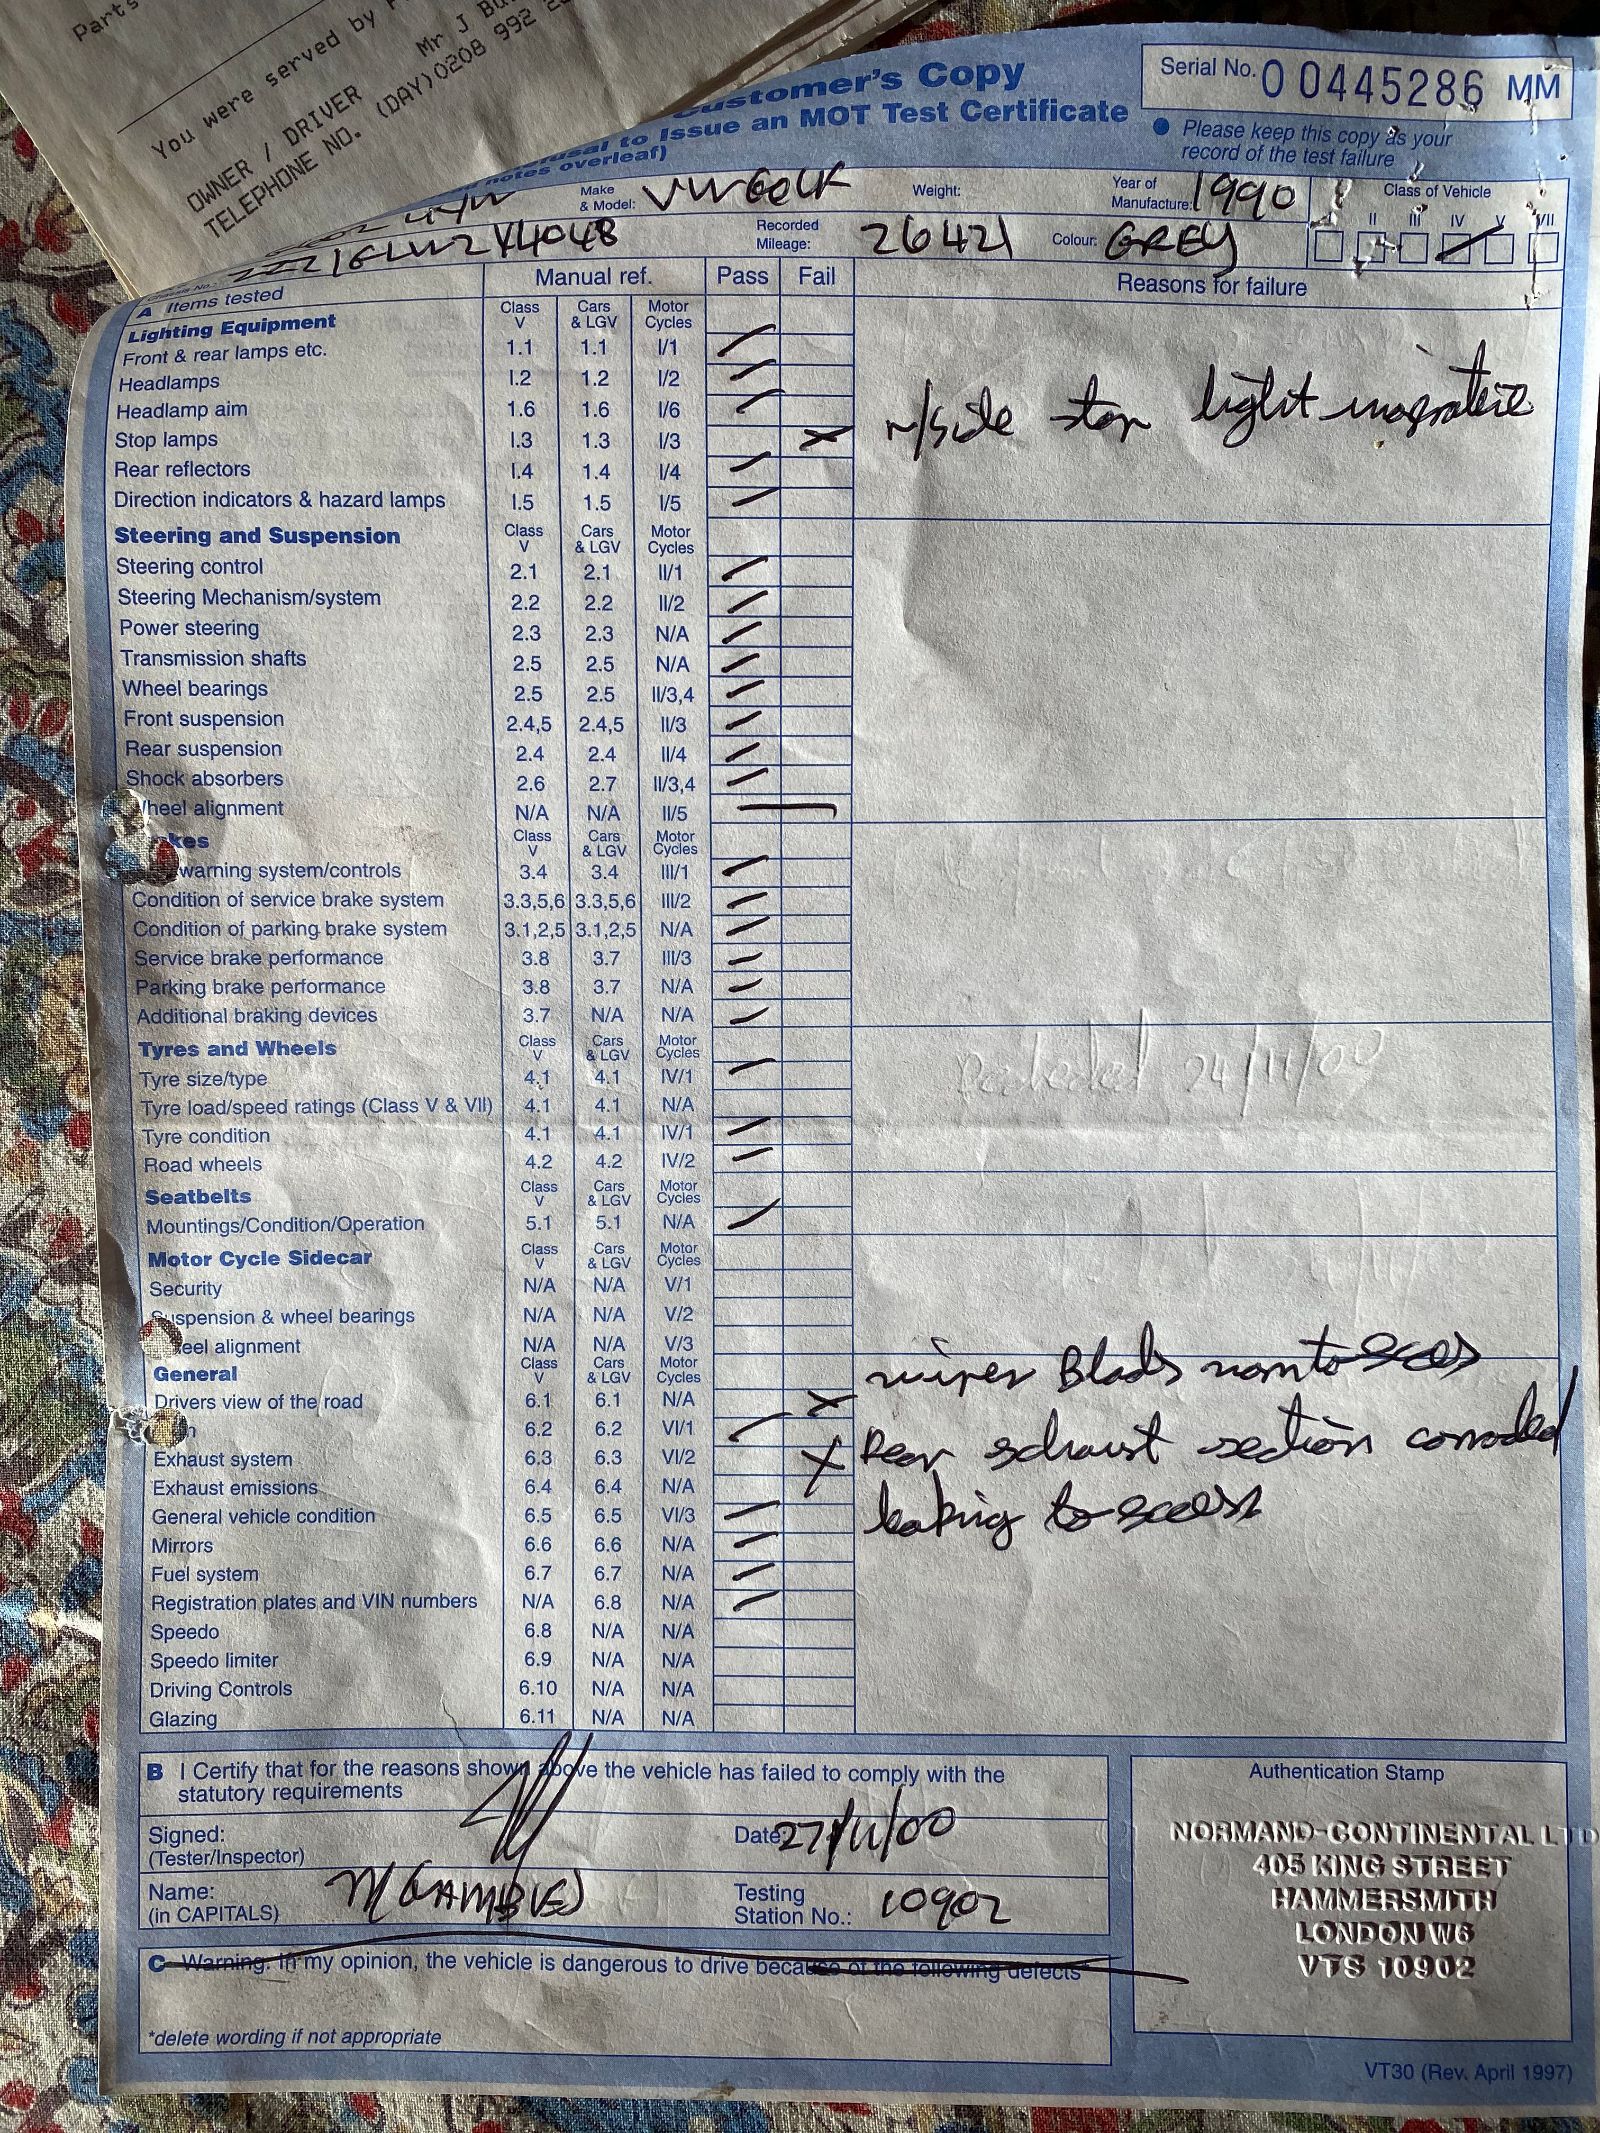 Parts
You were served by
OWNER / DRIVER Mr J
TELEPHONE NO. (DAY)0208 992
Customer's Copy
to Issue an MOT Test Certificate
notes overleaf)
Serial No. 00445286 MM
Please keep this copy as your
record of the test failure
Make & Model: VW GOLF Weight: Year of Manufacture: 1990 Class of Vehicle
II III IV V VII
ZZZ1GLW2 Recorded Mileage: 26421 Colour: GREY
A Items tested Manual ref. Pass Fail Reasons for failure
Lighting Equipment Class V Cars & LGV Motor Cycles
Front & rear lamps etc. 1.1 1.1 I/1
Headlamps I.2 1.2 I/2
Headlamp aim 1.6 1.6 I/6
Stop lamps I.3 1.3 I/3 n/side stop light inoperative
Rear reflectors I.4 1.4 I/4
Direction indicators & hazard lamps I.5 1.5 I/5
Steering and Suspension Class V Cars & LGV Motor Cycles
Steering control 2.1 2.1 II/1
Steering Mechanism/system 2.2 2.2 II/2
Power steering 2.3 2.3 N/A
Transmission shafts 2.5 2.5 N/A
Wheel bearings 2.5 2.5 II/3,4
Front suspension 2.4,5 2.4,5 II/3
Rear suspension 2.4 2.4 II/4
Shock absorbers 2.6 2.7 II/3,4
heel alignment N/A N/A II/5
kes Class V Cars & LGV Motor Cycles
warning system/controls 3.4 3.4 III/1
Condition of service brake system 3.3,5,6 3.3,5,6 III/2
Condition of parking brake system 3.1,2,5 3.1,2,5 N/A
Service brake performance 3.8 3.7 III/3
Parking brake performance 3.8 3.7 N/A
Additional braking devices 3.7 N/A N/A
Tyres and Wheels Class V Cars & LGV Motor Cycles
Tyre size/type 4.1 4.1 IV/1 24/11/00
Tyre load/speed ratings (Class V & VII) 4.1 4.1 N/A
Tyre condition 4.1 4.1 IV/1
Road wheels 4.2 4.2 IV/2
Seatbelts Class V Cars & LGV Motor Cycles
Mountings/Condition/Operation 5.1 5.1 N/A
Motor Cycle Sidecar Class V Cars & LGV Motor Cycles
Security N/A N/A V/1
Suspension & wheel bearings N/A N/A V/2
eel alignment N/A N/A V/3
General Class V Cars & LGV Motor Cycles wiper Blades worn to
Drivers view of the road 6.1 6.1 N/A
n 6.2 6.2 VI/1
Exhaust system 6.3 6.3 VI/2 Rear exhaust section corroded
Exhaust emissions 6.4 6.4 N/A
General vehicle condition 6.5 6.5 VI/3 leaking to
Mirrors 6.6 6.6 N/A
Fuel system 6.7 6.7 N/A
Registration plates and VIN numbers N/A 6.8 N/A
Speedo 6.8 N/A N/A
Speedo limiter 6.9 N/A N/A
Driving Controls 6.10 N/A N/A
Glazing 6.11 N/A N/A
B I Certify that for the reasons shown above the vehicle has failed to comply with the
statutory requirements
Signed:
(Tester/Inspector)
Date: 27/11/00
Name:
(in CAPITALS)
Testing
Station No.: 10902
Authentication Stamp
NORMAND-CONTINENTAL LTD
405 KING STREET
HAMMERSMITH
LONDON W6
VTS 10902
C Warning: In my opinion, the vehicle is dangerous to drive because of the following defects*
*delete wording if not appropriate
VT30 (Rev. April 1997)